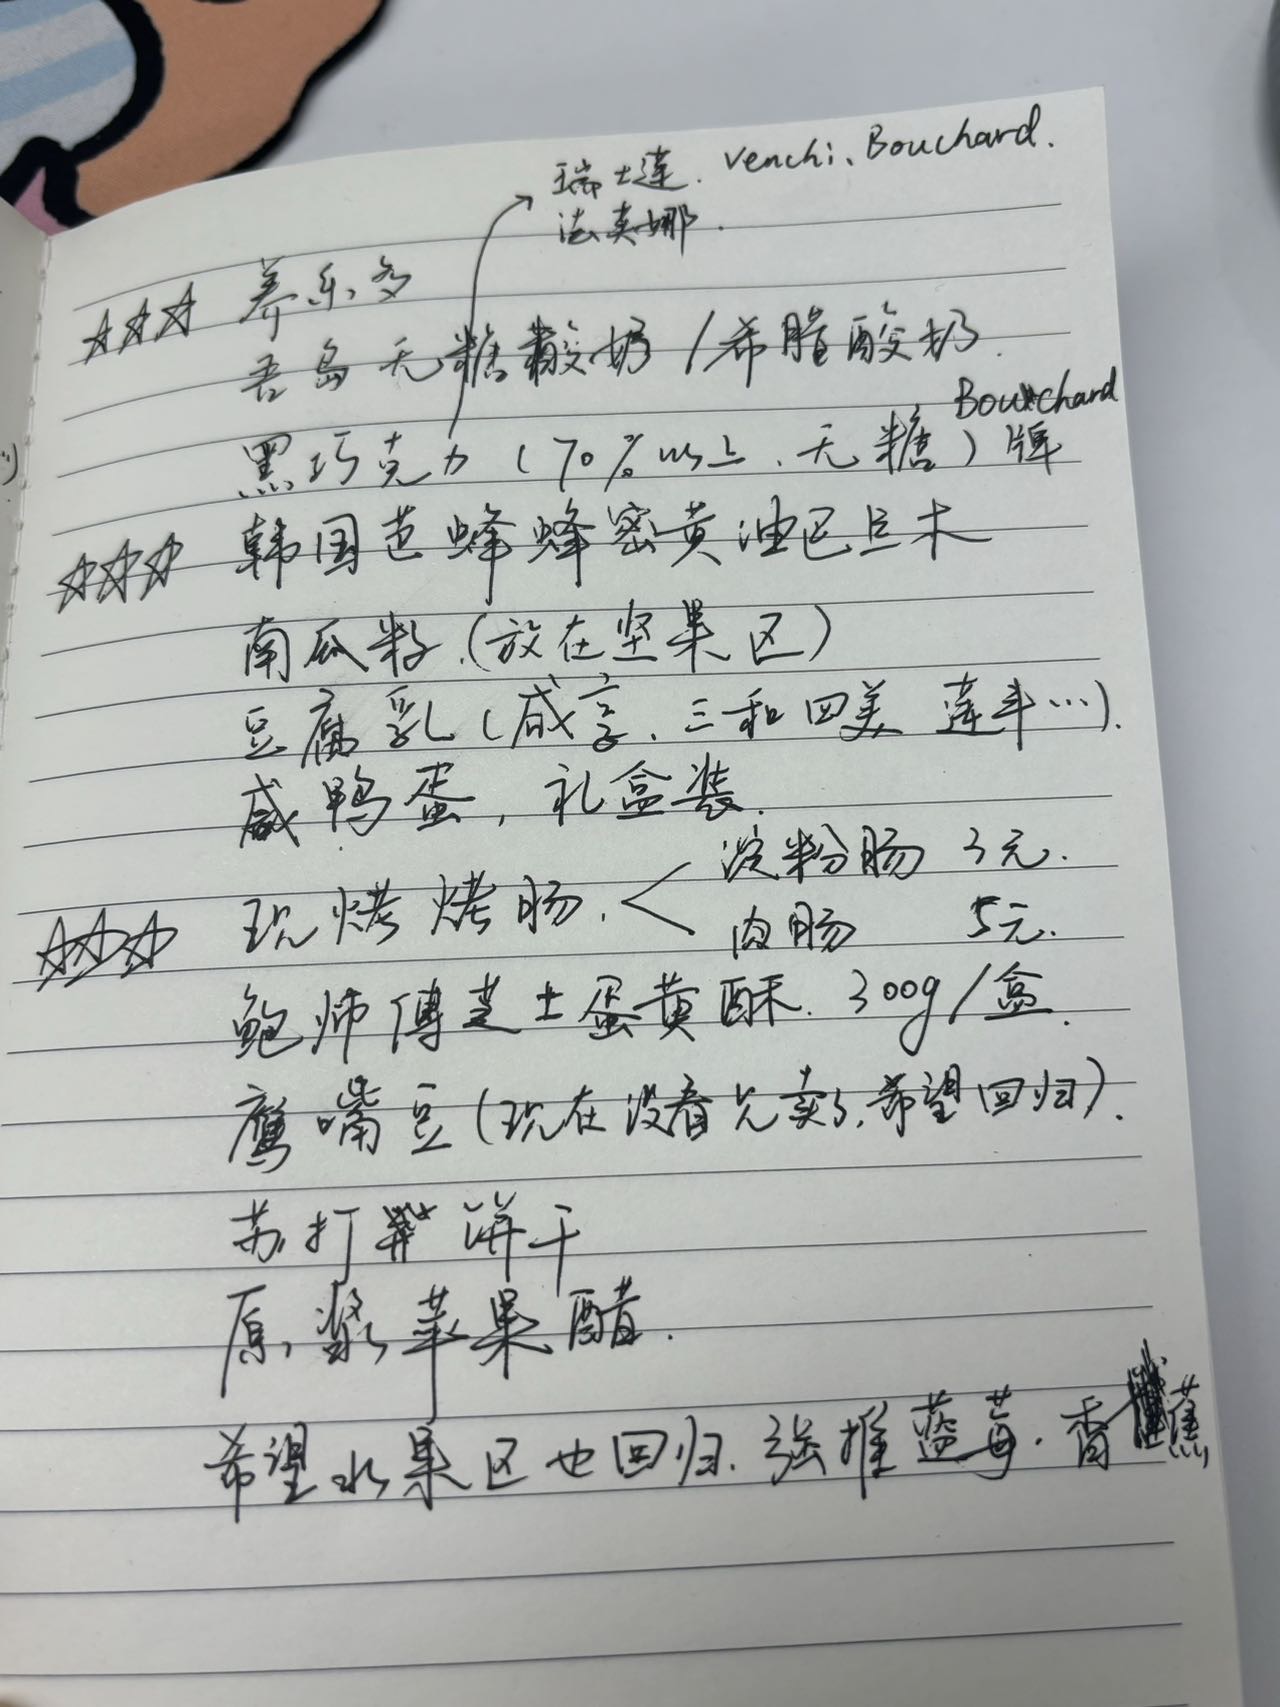 瑞士莲. Venchi、Bouchard.
法芙娜.
☆☆☆ 养乐多
吾岛无糖酸奶/希腊酸奶.
Bouchard
黑巧克力(70%以上、无糖)牌
☆☆☆ 韩国芭蜂蜂密黄油巴旦木
南瓜籽.(放在坚果区)
豆腐乳(咸亨、三和四美 莲丰…).
咸鸭蛋,礼盒装.
☆☆☆ 现烤烤肠. < 淀粉肠 3元.
肉肠 5元.
鲍师傅芝士蛋黄酥. 300g/盒.
鹰嘴豆(现在没看见卖了,希望回归).
苏打饼干
原浆苹果醋.
希望水果区也回归. 强推蓝莓.香蕉